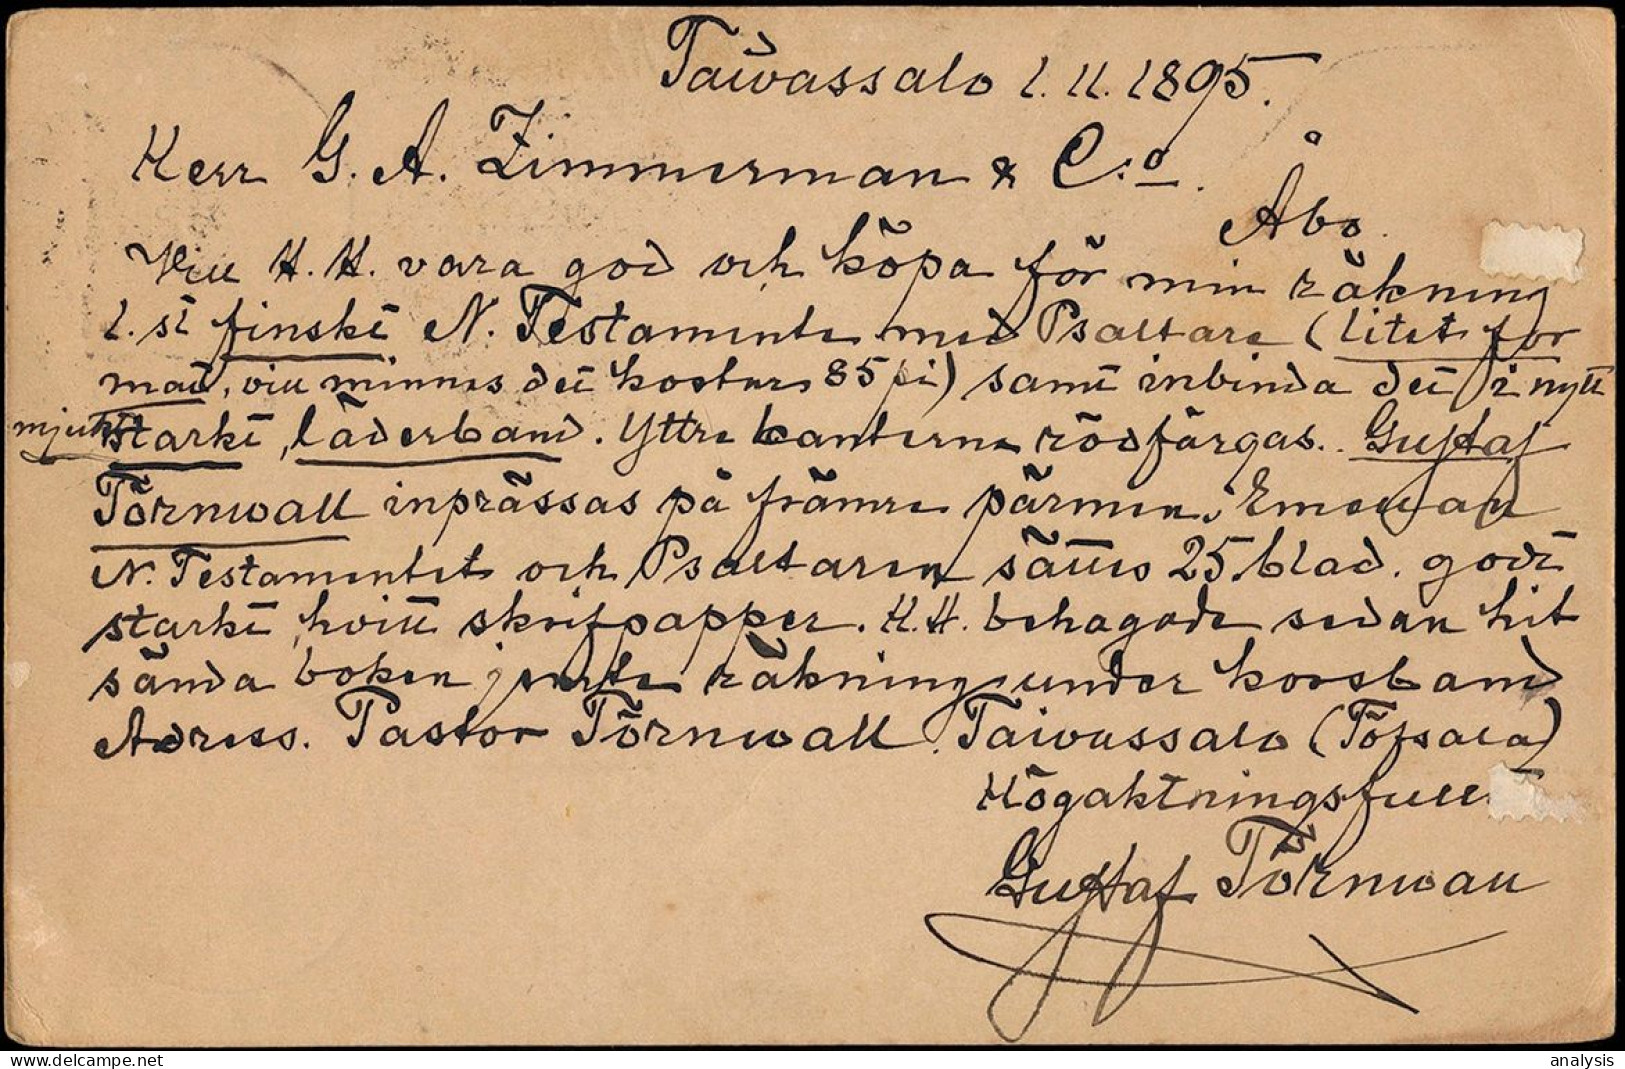 Taiwassalo 1.11.1895.
Herr G. A. Zimmerman & C:o.
Åbo.
Vill H. H. vara god och köpa för min räkning
1. st finskt N. Testamente med Psaltare (litet for
mat, vill minnas det kostar 85 pi) samt inbinda det i nytt
mjukt starkt, läderband. Yttre kanterne rödfärgas. Gustaf
Törnwall inprässas på främre pärmen. Emellan
N. Testamentet och Psaltaren sättes 25 blad. godt
starkt, hvitt skrifpapper. H. H. behagade sedan hit
sända boken jemte räkning under korsband
Adress. Pastor Törnwall. Taiwassalo (Töfsala)
Högaktningsfullt
Gustaf Törnwall
www.delcampe.net
analysis